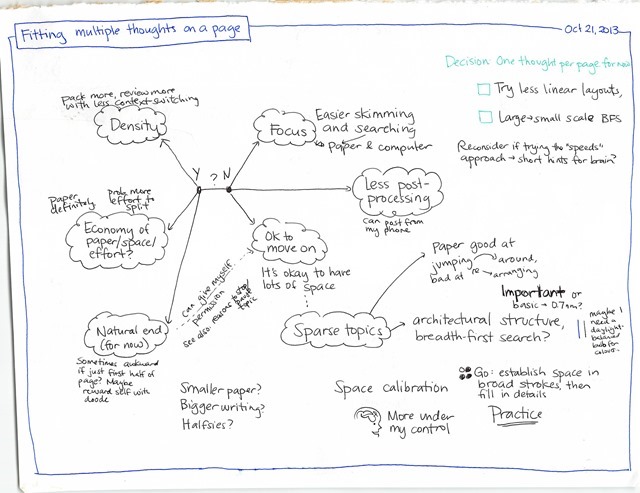 Fitting multiple thoughts on a page
Oct 21, 2013
Decision: One thought per page for now
Try less linear layouts,
Large→small scale BFS
Reconsider if trying the "speeds"
approach → short hints for brain?
pack more, review more
with less context-switching
Density
Focus
Easier skimming
and searching
paper & computer
Y ? N
Less post-
processing
can post from
my phone
Paper
definitely
prob. more
effort to
split
Economy of
paper/space/
effort?
Ok to
move on
It's okay to have
lots of space
can give myself
permission
see also reasons to stop/
topic
Natural end
(for now)
Sometimes awkward
if just first half of
page? Maybe
reward self with
doodle
Sparse topics
Paper good at
jumping around,
bad at re arranging
Important or
basic →
architectural structure,
breadth-first search?
maybe I
need a
daylight-
balanced
bulb for
colour
Smaller paper?
Bigger writing?
Halfsies?
Space calibration
More under
my control
Go: establish space in
broad strokes, then
fill in details
Practice